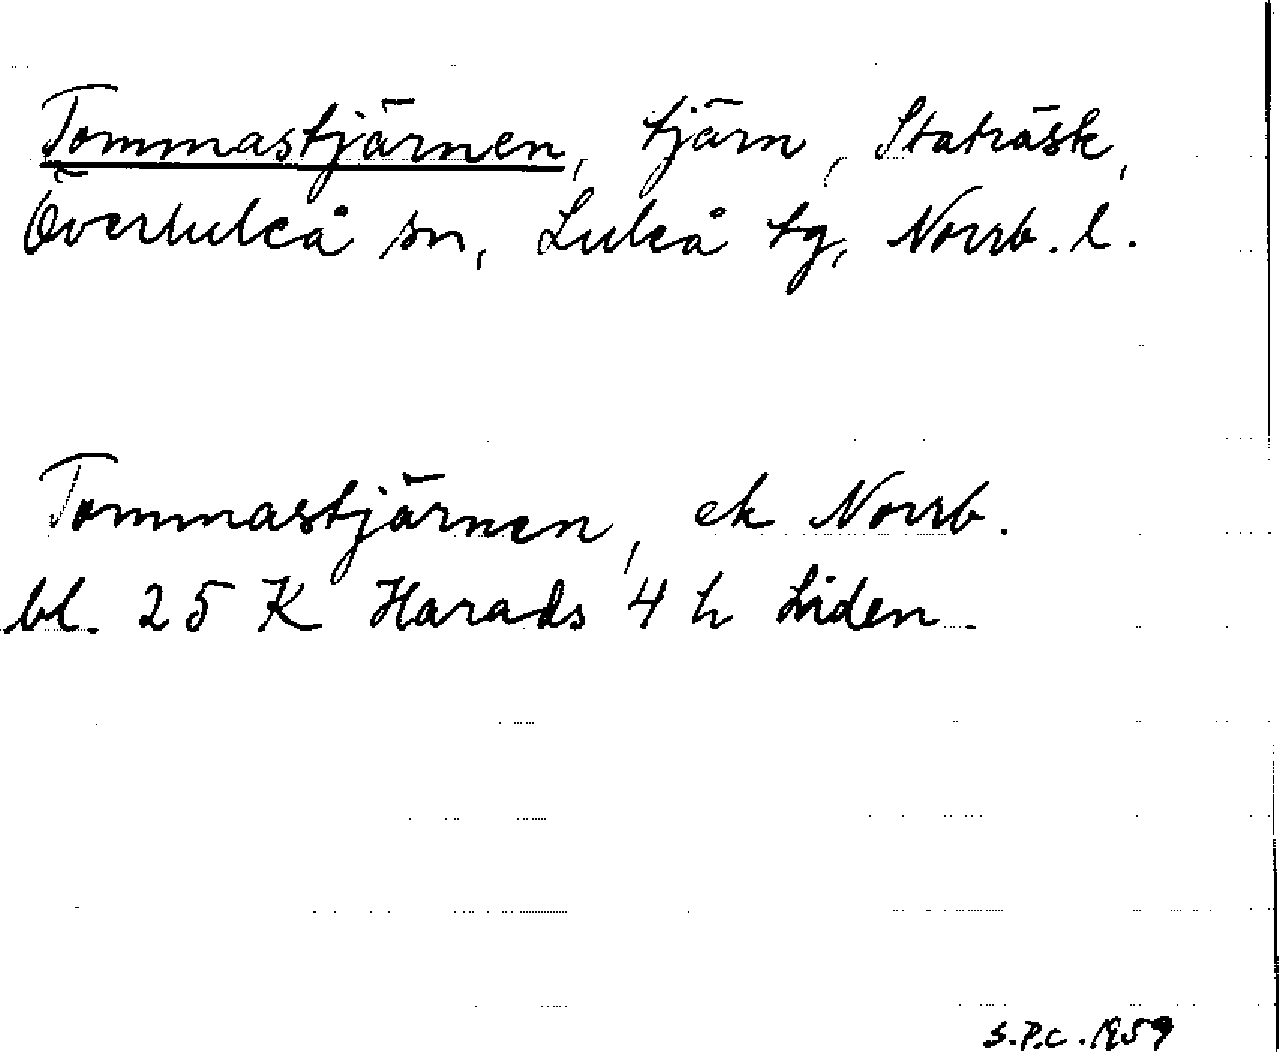 Tommastjärnen, tjärn, Staträsk,
Överluleå sn, Luleå tg, Norrb. l.
Tommastjärnen, ek Norrb.
bl. 25 K Harads 4 h Liden.
S.P.C. 1959